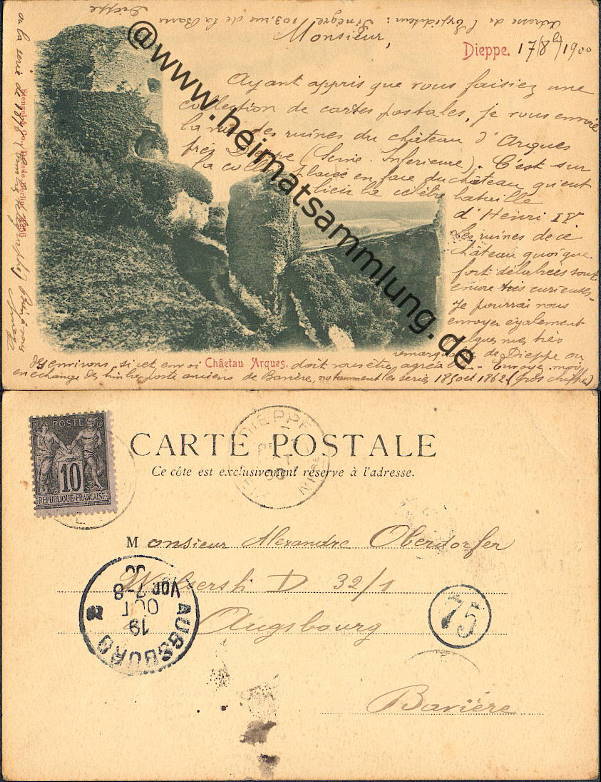 Dieppe. 17/8bre 1900
Monsieur,
Ayant appris que vous faisiez une
collection de cartes postales, je vous envoie
la vue des ruines du château d'Arques
près Dieppe (Seine Inférieure). C'est sur
la colline placée en face du château qu'eut
lieu la célèbre bataille
d'Henri IV
Les ruines de ce
château quoique
fort délabrées sont
encore très curieuses.
Je pourrai vous
envoyer également
quelques vues très
remarquables de Dieppe ou
des environs, si cet envoi doit vous être agréable. Envoyez moi
en échange des timbres poste anciens de Bavière, notamment les séries 1850 et 1862 (gros chiffres)
ou la série de 1876
Adresse de l'Expéditeur: 103, rue de la Barre
Dieppe
Château Arques.
@www.heimatsammlung.de
POSTES
10
REPUBLIQUE FRANÇAISE
DIEPPE
CARTE POSTALE
Ce côté est exclusivement réservé à l'adresse.
M onsieur Alexandre Oberdorfer
D 32/1
Augsbourg
Bavière
AUGSBURG
19
OCT
VOR 7-8
00
75